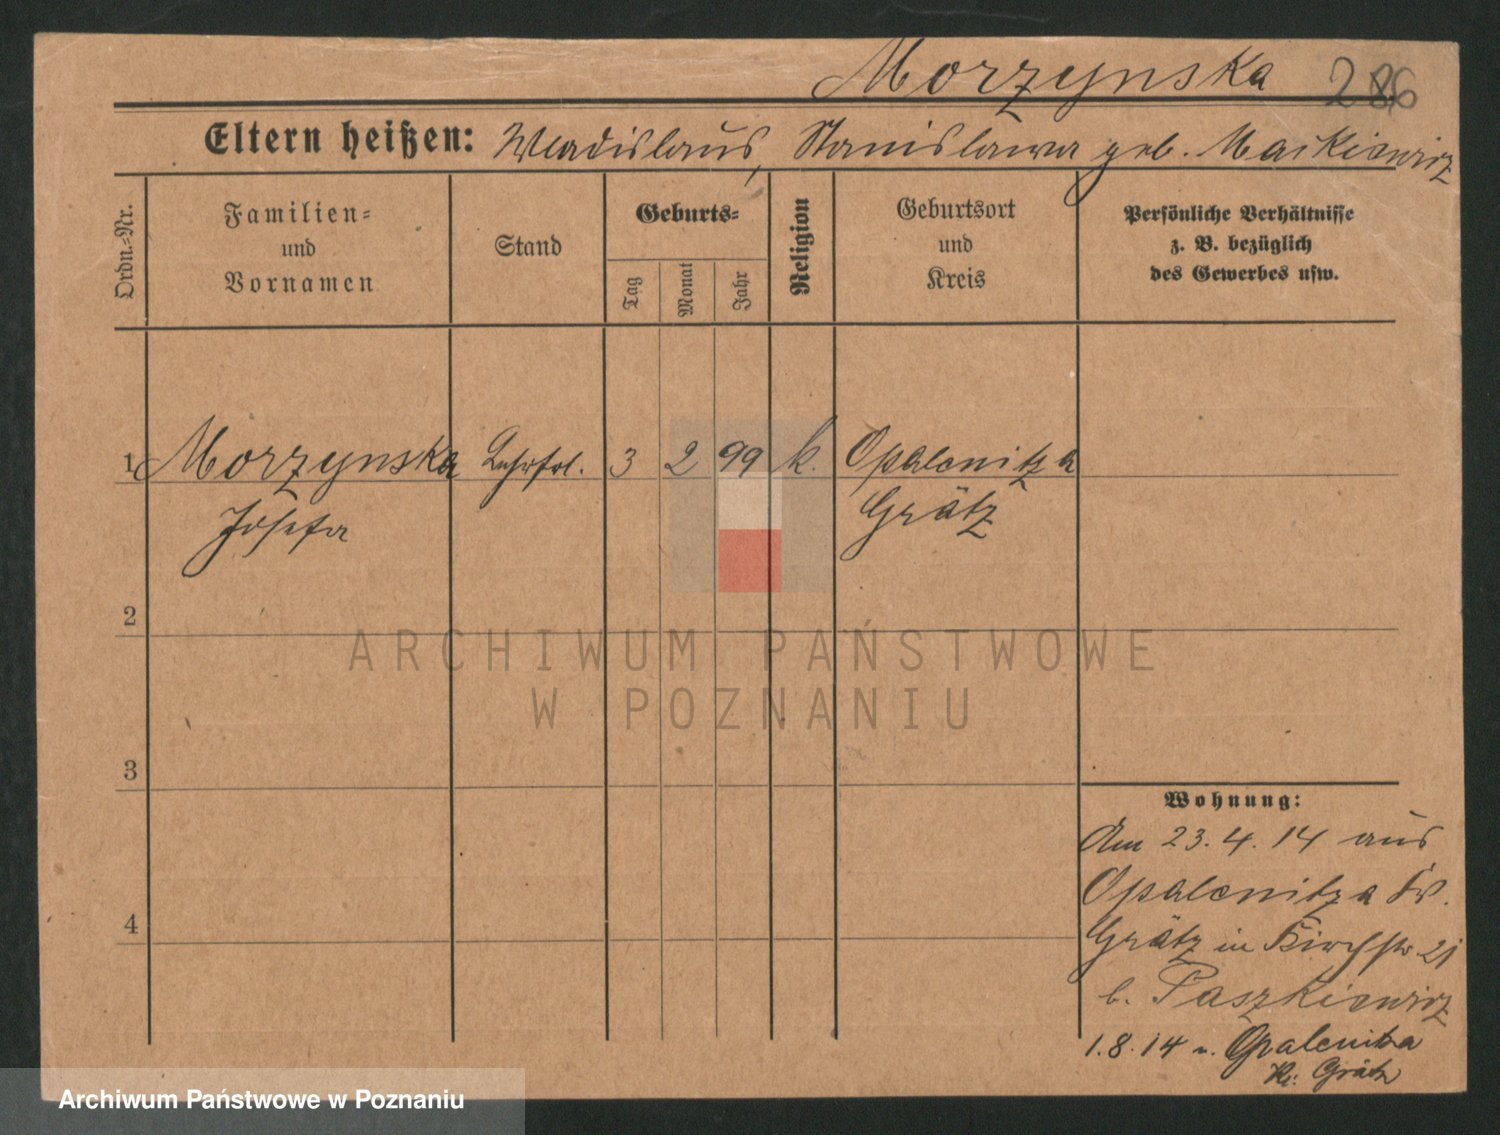 Morzynska 286
Eltern heißen: Wladislaus, Stanislawa geb. Maćkiewicz
Ordn.-Nr.
Familien-
und
Vornamen
Stand
Geburts-
Tag
Monat
Jahr
Religion
Geburtsort
und
Kreis
Persönliche Verhältnisse
z. B. bezüglich
des Gewerbes usw.
1 Morzynska Lehrfrl. 3 2 99 k. Opalenitza
Josefa Grätz
2
3
4
Wohnung:
Am 23.4.14 aus
Opalenitza Kr.
Grätz in Kirchstr 21
b. Paszkiewicz
1.8.14 n. Opalenitza
Kr. Grätz
ARCHIWUM PAŃSTWOWE
W POZNANIU
Archiwum Państwowe w Poznaniu